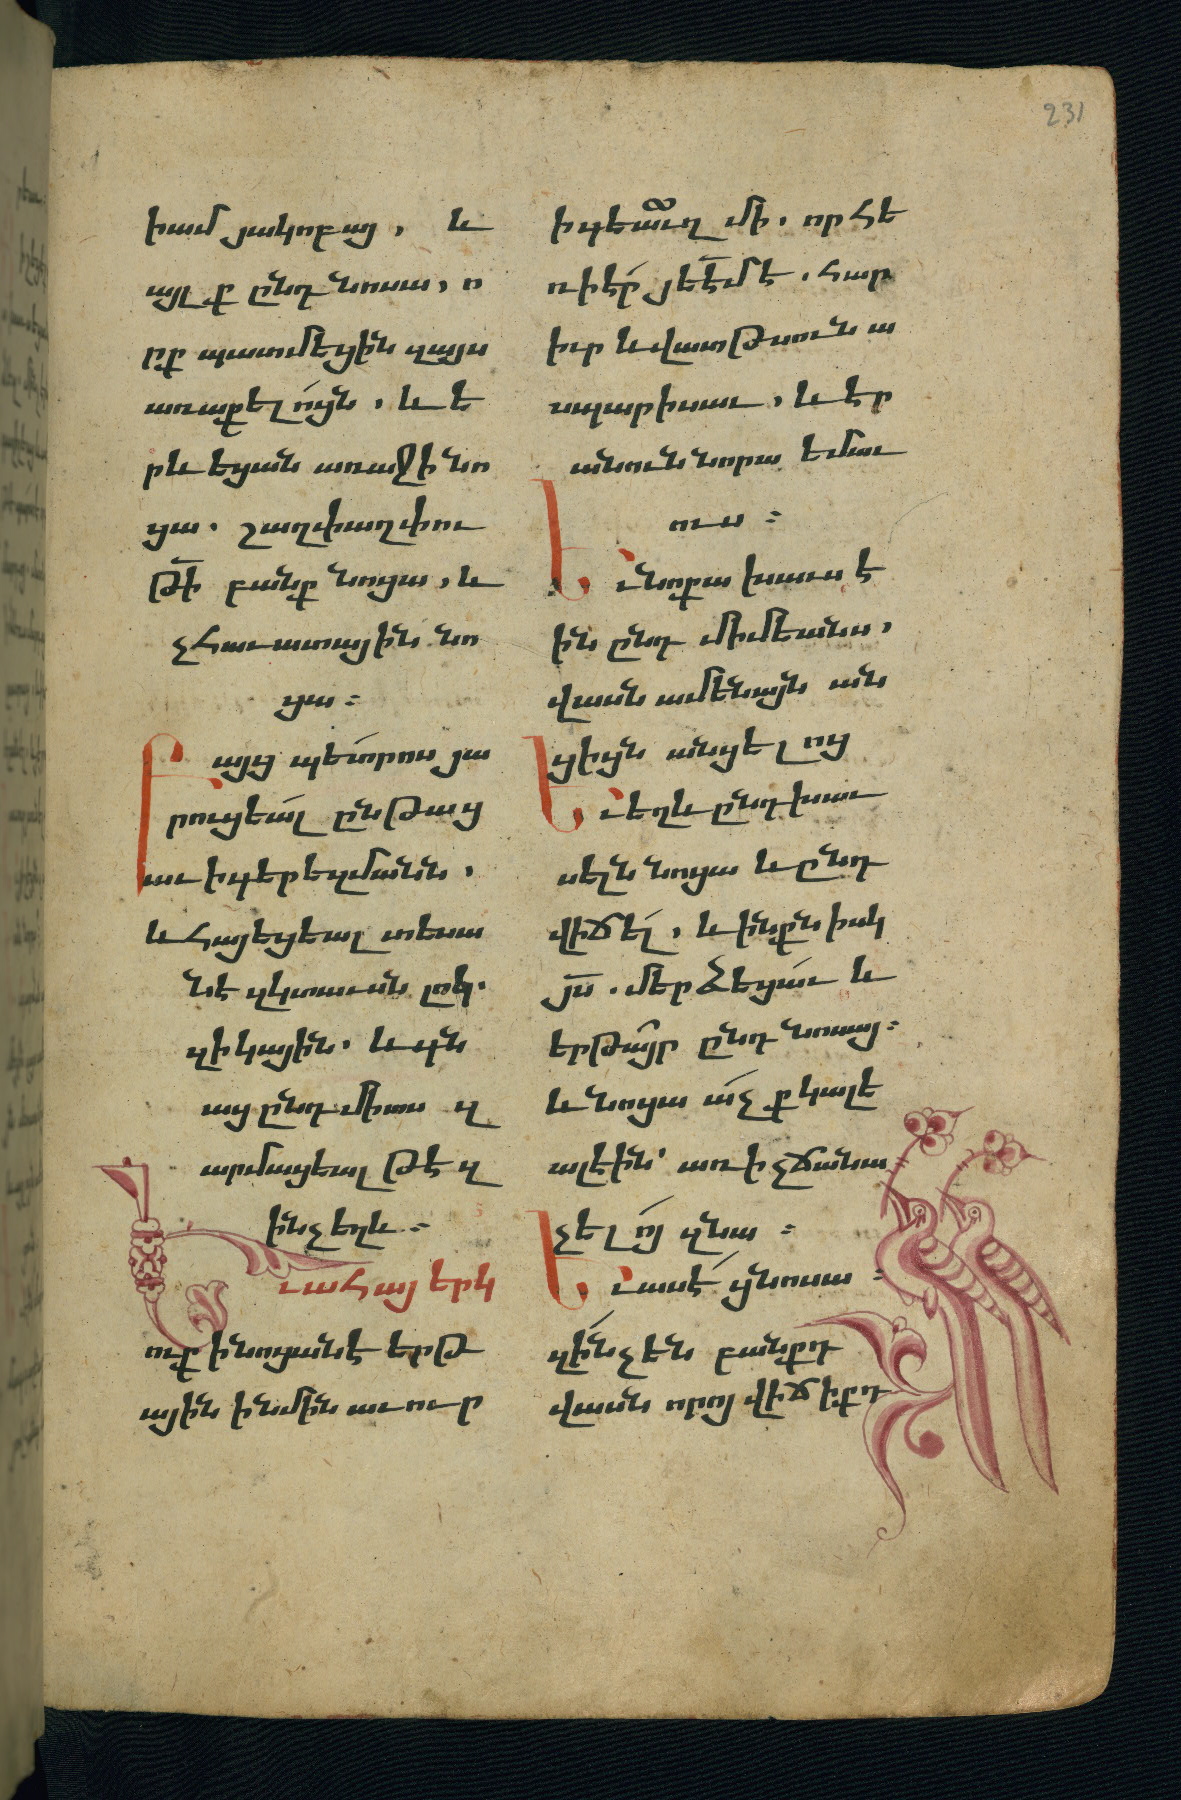 231
իամ յակոբայ, և
այլ ք ընդ նոսա, ո
րք պատմեցին զայս
առաքելոյն, և ե
րևեցան առաջի նո
ցա. շաղփաղփու
թի բանք նոցա, և
չհաւատային նո
ցա։
Բայց պետրոս յա
րուցեալ ընթաց
աւ ի գերեզմանն,
և հայեցեալ տեսա
նէ զկտաւսն լոկ.
զի կային. և գն
աց ընդ միտս զ
արմացեալ թէ զ
ինչ եղև։
Եւ ահայ երկ
ուք ի նոցանէ երթ
ային ի նմին աւուր
ի գեաւղ մի. որ հե
ռի էր յեէմէ. հար
իւր և վաթսուն ա
սպարիսաւ, և էր
անուն նորա եմաւ
ուս։
Եւ նոքա խաւսէ
ին ընդ միմեանս,
վասն ամենայն ան
ցիցն անցելոց
Եւ եղև ընդ խաւ
սելն նոցա և ընդ
վիճել, և ինքն իսկ
յս. մերձեցաւ և
երթայր ընդ նոսայ։
և նոցա աչք կալե
ալ էին՝ առ ի չճանա
չելոյ զնա։
Եւ ասէ ցնոսա։
զինչ են բանքդ
վասն որոյ վիճիքդ